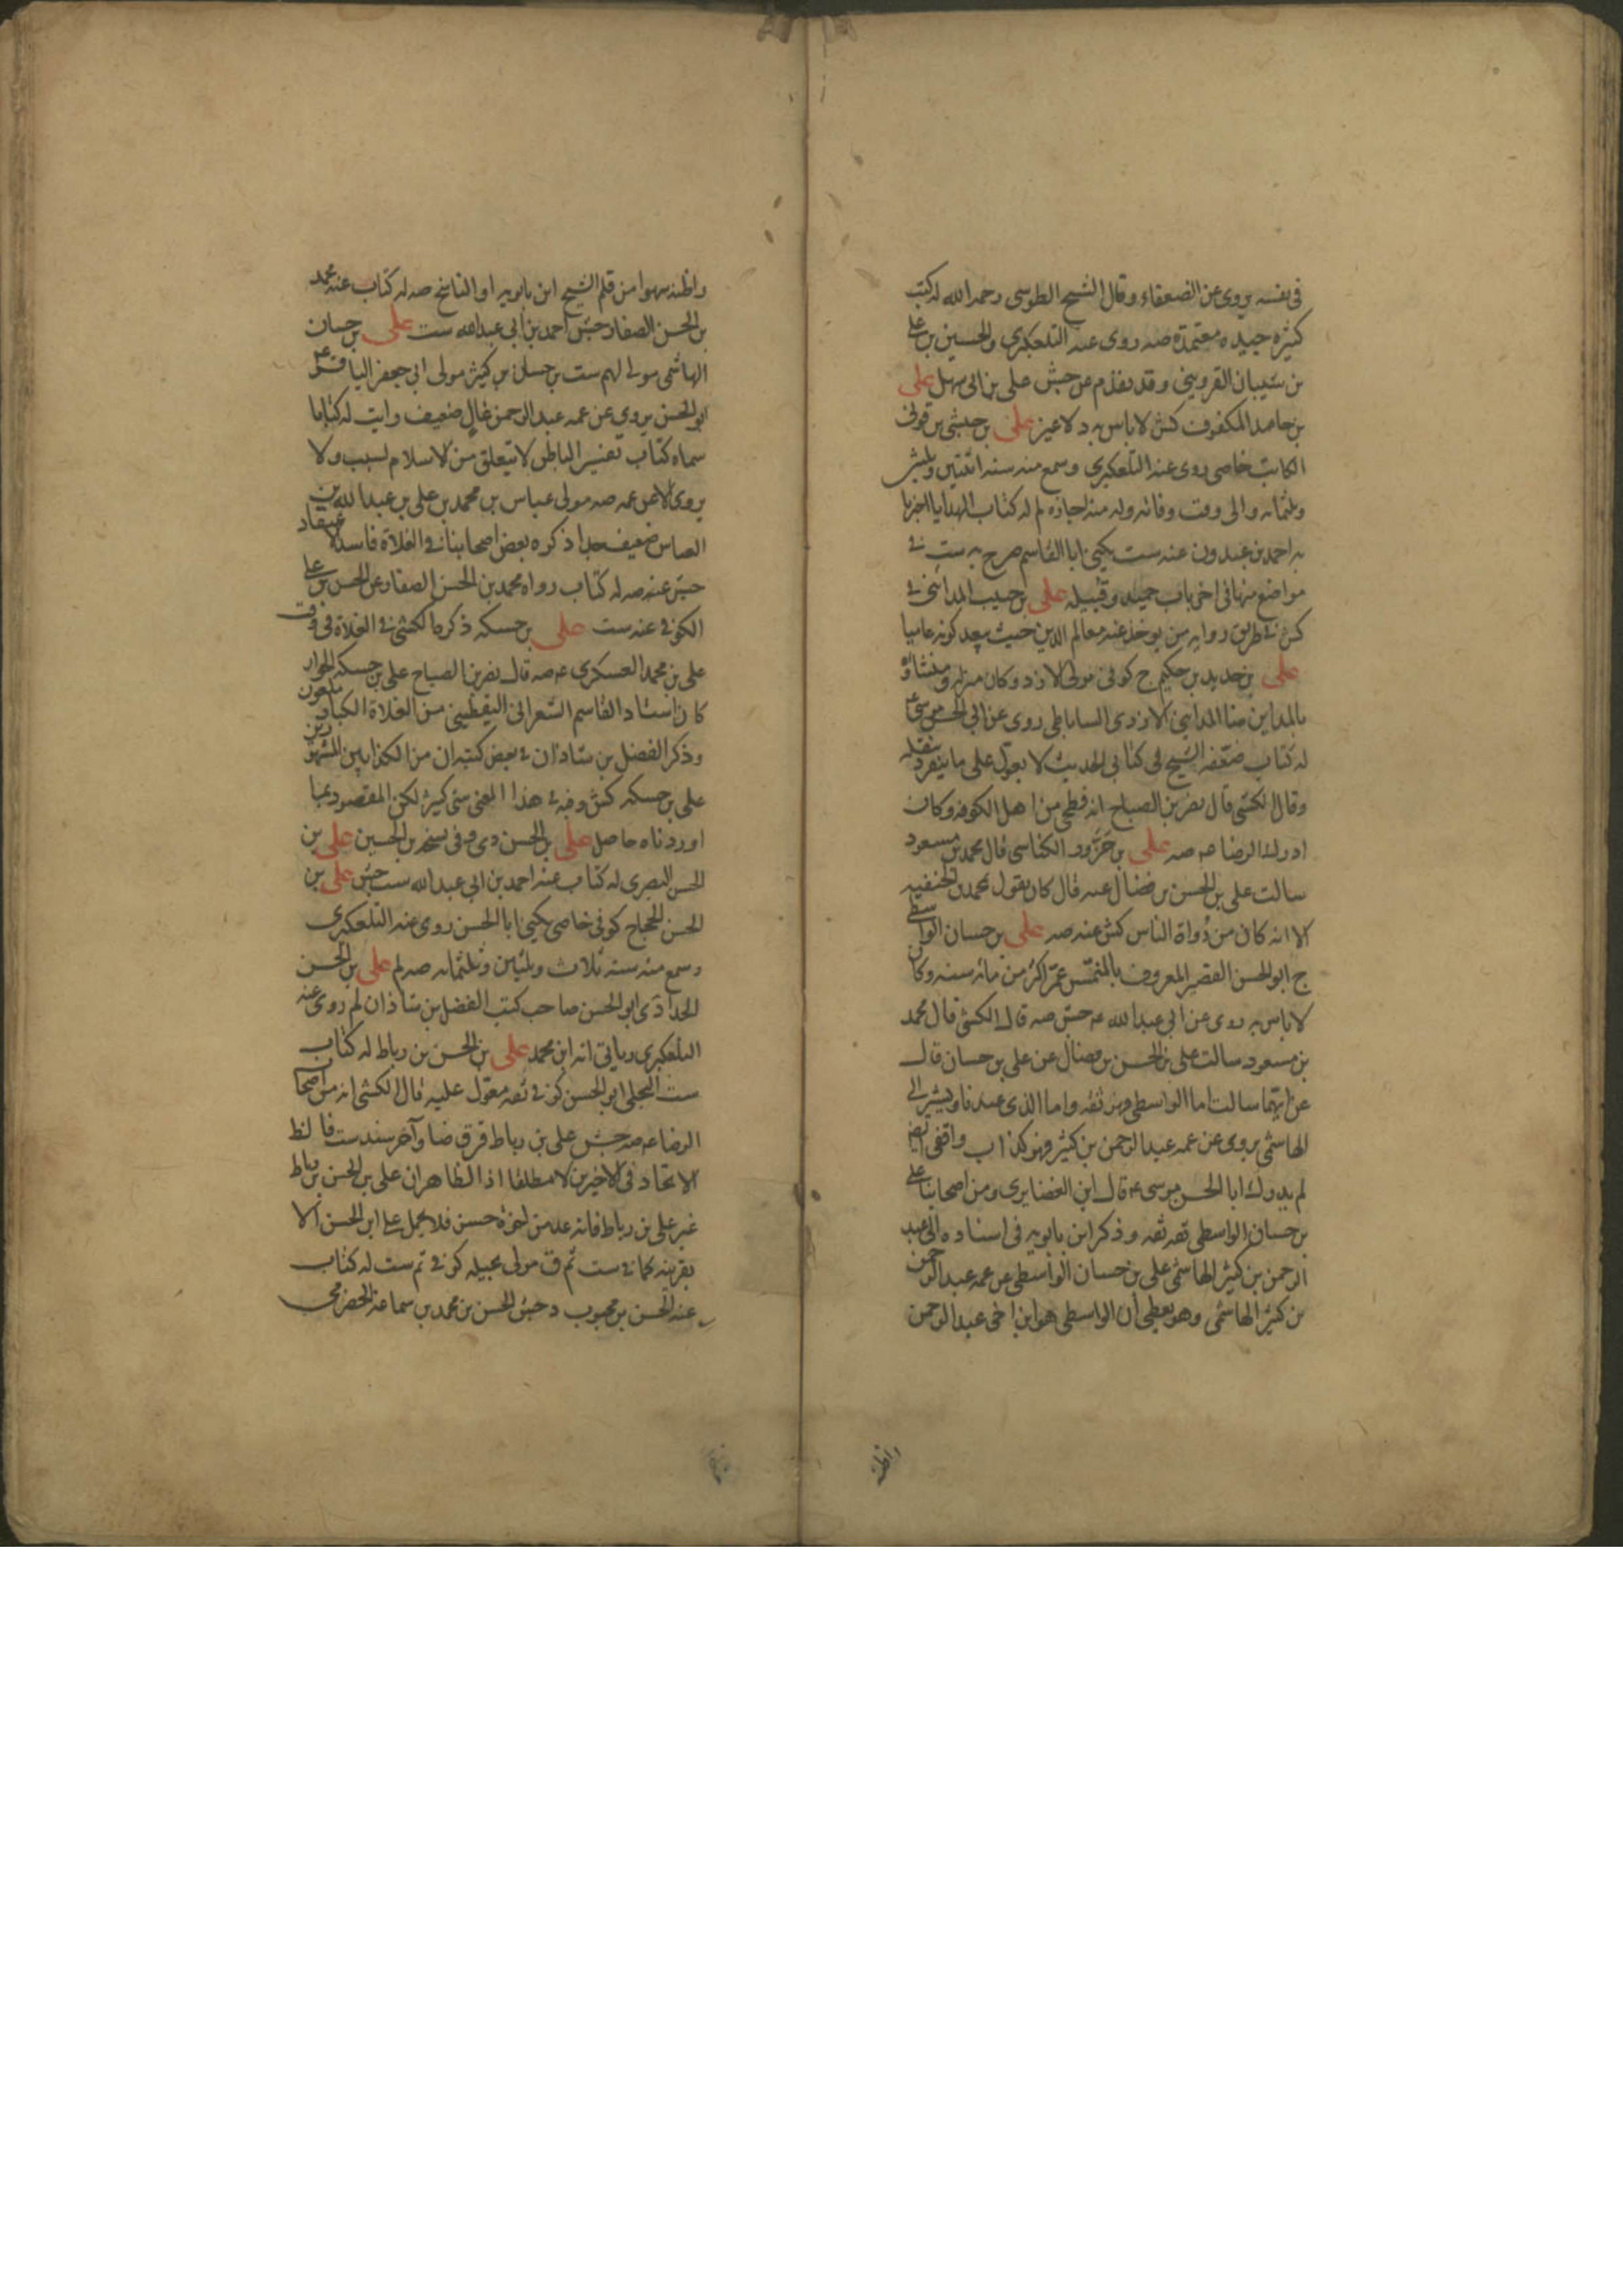 فى نفسه يروى عن الضعفاء وقال الشيخ الطوسى رحمه الله له كتب
كثيرة جيده معتمدة صه روى عنه التلعكبرى والحسين بن على
بن شيبان القزوينى وقد تقدم عن جش على بن ابى سهل على
بن حامد المكفوف كش لا باس به د لا غير على بن حبشى بن قونى
الكاتب خاصى روى عنه التلعكبرى وسمع منه سنه اثنتين وثلثين
وثلثمائه والى وقت وفاته وله منه اجازه لم له كتاب الهدايا اخبرنا
به احمد بن عبدون عنه ست يكنى ابا القاسم صرح به ست فى
مواضع منها فى اخر باب حميد وقتيبه على بن حبيب المداينى فى
كش فى طريق روايه من يوخذ عنه معالم الدين حيث يبعد كونه عاميا
على بن حديد بن حكيم ج كوفى مولى الازد وكان منزله ومنشاؤه
بالمداين ضا المداينى الازدى الساباطى روى عن ابى الحسن موسى ع
له كتاب ضعفه الشيخ فى كتابى الحديث لا يعول على ما ينفرد بنقله
وقال الكشى قال نصر بن الصباح انه فطحى من اهل الكوفه وكان
ادرك الرضا عه صه على بن حزور الكناسى قال محمد بن مسعود
سالت على بن الحسن بن فضال عنه قال كان يقول بمحمد بن الحنفيه
الا انه كان من رواة الناس كش عنه صه على بن حسان الواسطى
ج ابو الحسن القصير المعروف بالمنمس عمر اكثر من مائه سنه وكان
لا باس به روى عن ابى عبد الله عه جش صه قال الكشى قال محمد
بن مسعود سالت على بن الحسن بن فضال عن على بن حسان قال
عن ايهما سالت اما الواسطى فهو ثقه واما الذى عندنا ويشير الى
الهاشمى يروى عن عمه عبد الرحمن بن كثير فهو كذاب واقفى ايضا
لم يدرك ابا الحسن موسى عه قال ابن الغضايرى ومن اصحابنا على
بن حسان الواسطى ثقه ثقه وذكر ابن بابويه فى اسناده الى عبد
الرحمن بن كثير الهاشمى على بن حسان الواسطى عن عمه عبد الرحمن
بن كثير الهاشمى وهو يعطى ان الواسطى هو ابن اخى عبد الرحمن
واظنه
واظنه سهوا من قلم الشيخ ابن بابويه او الناسخ صه له كتاب عنه محمد
بن الحسن الصفار جش احمد بن ابى عبد الله ست على بن حسان
الهاشمى مولى لهم ست بن حسان بن كثير مولى ابى جعفر الباقر ع
ابو الحسن يروى عن عمه عبد الرحمن غال ضعيف رايت له كتابا
سماه كتاب تفسير الباطن لا يتعلق من الاسلام بسبب ولا
يروى الا عن عمه صه مولى عباس بن محمد بن على بن عبد الله بن
العباس ضعيف جدا ذكره بعض اصحابنا فى الغلاة فاسد الاعتقاد
جش عنه صه له كتاب رواه محمد بن الحسن الصفار عن الحسن بن على
الكوفى عنه ست على بن حسكه ذكره الكشى فى الغلاة فى وقت
على بن محمد العسكرى عه صه قال نصر بن الصباح على بن حسكه الحوار
كان استاد القاسم الشعرانى اليقطينى من الغلاة الكبار ملعون
وذكر الفضل بن شاذان فى بعض كتبه ان من الكذابين المشهورين
على بن حسكه كش وفيه فى هذا المعنى شى كثير لكن المقصود بما
اوردناه حاصل على بن الحسن دى وفى نسخه بن الحسين على بن
الحسن البصرى له كتاب عنه احمد بن ابى عبد الله ست جش على بن
الحسن الحجاج كوفى خاصى يكنى ابا الحسن روى عنه التلعكبرى
وسمع منه سنه ثلاث وثلثين وثلثمائه صه لم على بن الحسن
الحدادى ابو الحسن صاحب كتب الفضل بن شاذان لم روى عنه
التلعكبرى وياتى انه ابن محمد على بن الحسن بن رباط له كتاب
ست البجلى ابو الحسن كوفى ثقه معول عليه قال الكشى انه من اصحاب
الرضا عه صه جش على بن رباط قر ق ضا وآخر سند ست فالظ
الاتحاد فى الاخيرين لا مطلقا اذ الظاهر ان على بن الحسن بن رباط
غير على بن رباط فانه عد من اخوة حسن فلا يحمل على ابن الحسن الا
بقرينه كما فى ست ثم ق مولى بجيله كوفى ثم ست له كتاب
عنه الحسن بن محبوب د جش الحسن بن محمد بن سماعة الحضرمى